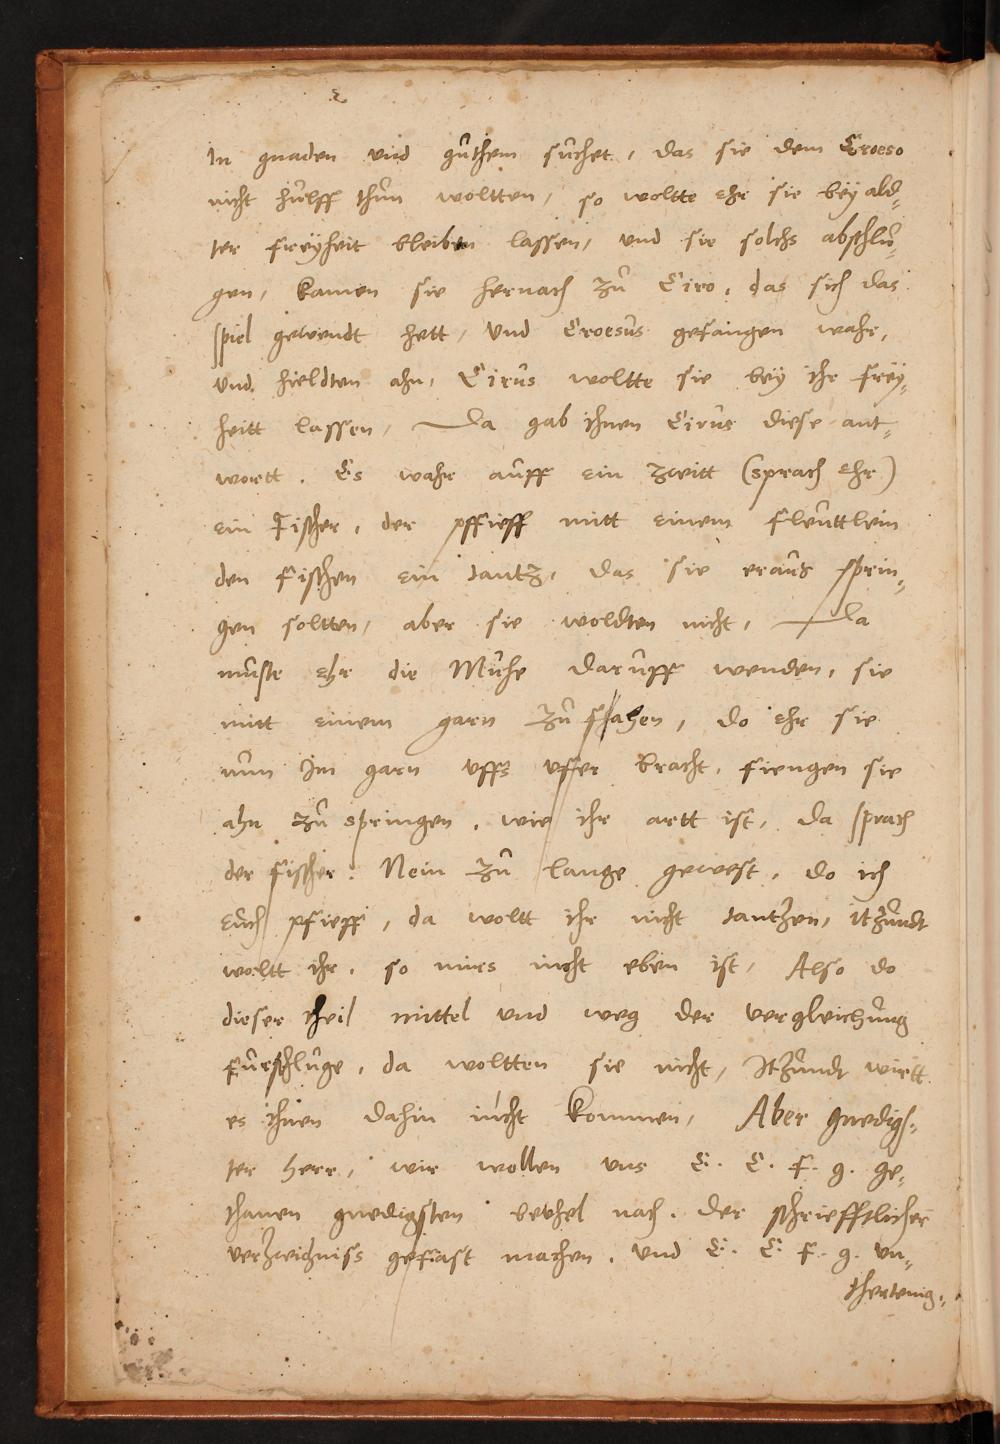 In gnaden und gůthem sůchet, das sie dem Croeso
nicht hůlff thůn woltten, so woltte ehr sie beÿ ald¬
ter freÿheit bleiben lassen, und sie solchs abschlů¬
gen, kamen sie hernach zů Ciro, das sich das
spiel gewendt hett, Und Croesůs gefangen wahr,
und hieldten ahn, Cirůs woltte sie beÿ ihr freÿ¬
heitt lassen, Da gab ihnen Cirůs diese ant¬
wortt. Es wahr aůff ein zeitt (sprach ehr)
ein Fischer, der pffieff mitt einem fleůttlein
den fischen ein tantz, das sie eraůs sprin¬
gen soltten, aber sie woldten nicht, Da
můste ehr die Můhe darůff wenden, sie
mitt einem garn zů fahen, do ehr sie
nůn Im garn uffs uffer bracht, fiengen sie
ahn zů springen, wie ihr artt ist, Da sprach
der fischer: Nein zů lange gewest, do ich
eůch pfieff, da woltt ihr nicht tantzen, itzůndt
woltt ihr, so mirs nicht eben ist, Also do
dieser theil mittel und weg der vergleichůng
fůrschlůge, da woltten sie nicht, Itzůndt wirtt
es ihnen dahin nicht kommen, Aber gnedigs¬
ter herr, wir wollen uns E. C. F. g. ge¬
thanen gnedigsten bevhel nach, der schriefftlicher
verzeichniss gefast machen, und E. C. F. g. un¬
thertenig¬